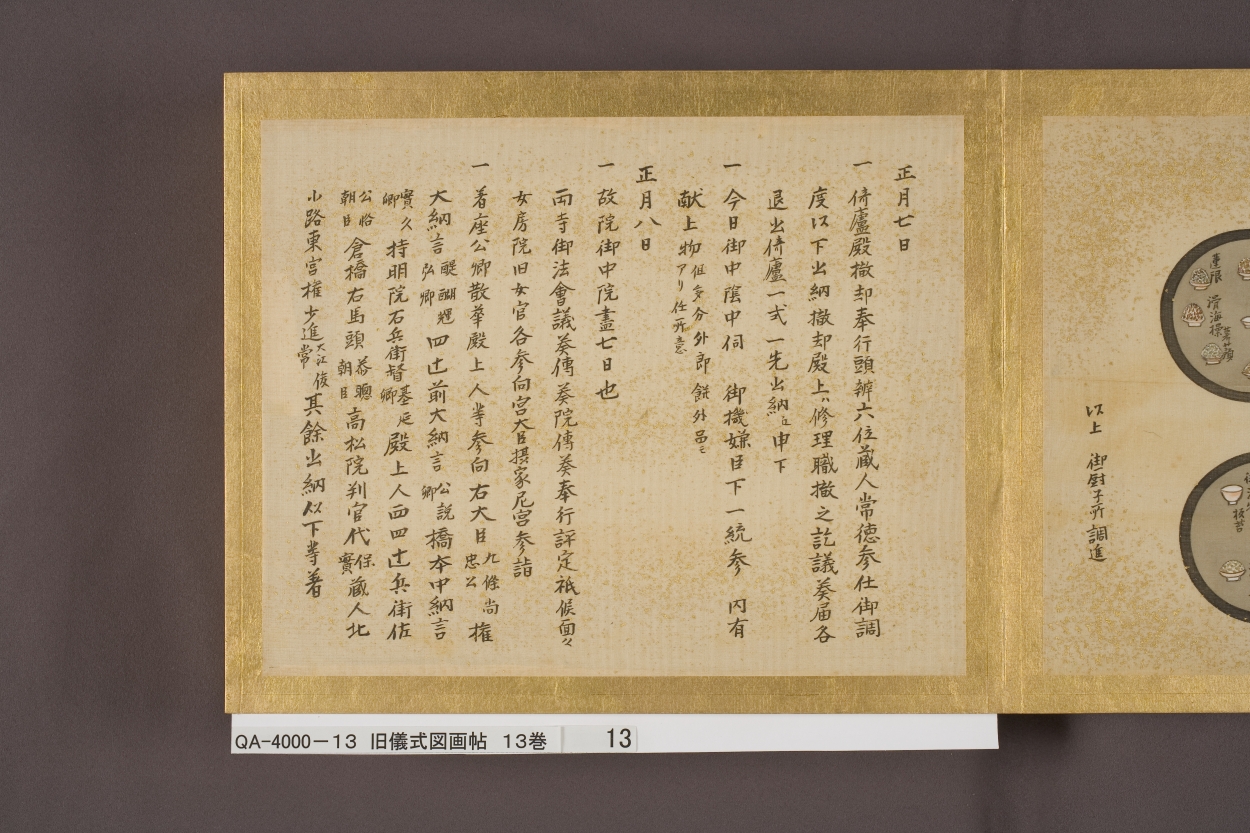 以上 御厨子所調進
蓮根
滑海藻
正月七日
一 倚廬殿撤却奉行頭辨六位蔵人常徳参仕御調
度以下出納撤却殿上ハ修理職撤之訖議奏届各
退出倚廬一式一先出納江申下
一 今日御中陰中伺 御機嫌臣下一統参 内有
献上物但多分外郎餅外品ニアリ任所意
正月八日
一 故院御中院盡七日也
両寺御法會議奏傳奏院傳奏奉行評定祇候面々
女房院旧女官各参向宮大臣摂家尼宮参詣
一 着座公卿散華殿上人等参向右大臣九條尚忠公権
大納言醍醐輝弘卿四辻前大納言公説卿橋本中納言
實久卿持明院右兵衛督基延卿殿上人四四辻兵衛佐
公恪朝臣倉橋右馬頭泰聰朝臣高松院判官代保實蔵人北
小路東宮権少進大江俊常其餘出納以下等着
QA-4000-13 旧儀式図画帖 13巻 13